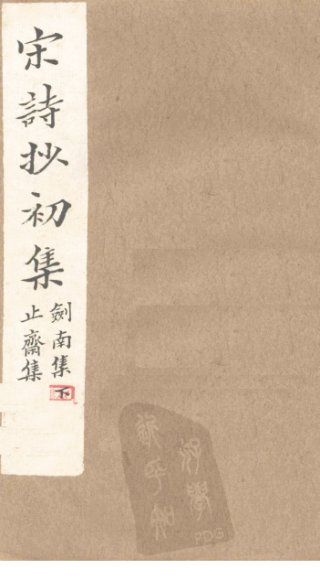 宋詩抄初集
劍南集下
止齋集
PDG